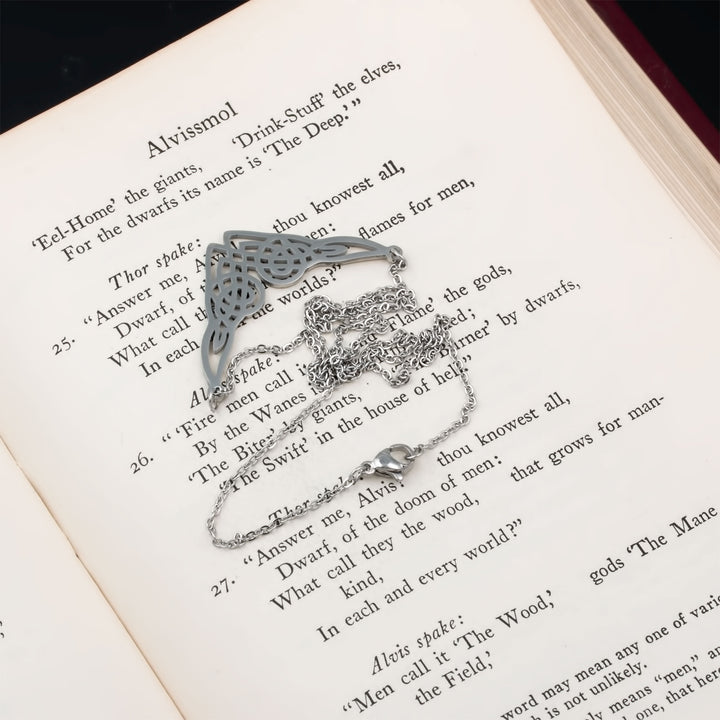 Alvissmol
'Eel-Home' the giants, 'Drink-Stuff' the elves,
For the dwarfs its name is 'The Deep.'"
Thor spake:
25. "Answer me, thou knowest all,
Dwarf, of men:
What call the flames for men,
In each the worlds?"
spake:
26. "'Fire' men call it 'Flame' the gods,
By the Wanes
'The Biter' by giants, 'Burner' by dwarfs,
'The Swift' in the house of hell."
Thor
27. "Answer me, Alvis! thou knowest all,
Dwarf, of the doom of men:
What call they the wood, that grows for man-
kind,
In each and every world?"
Alvis spake:
"Men call it 'The Wood,' gods 'The Mane
the Field,'
word may mean any one of
is not unlikely.
means "men,"
one, that